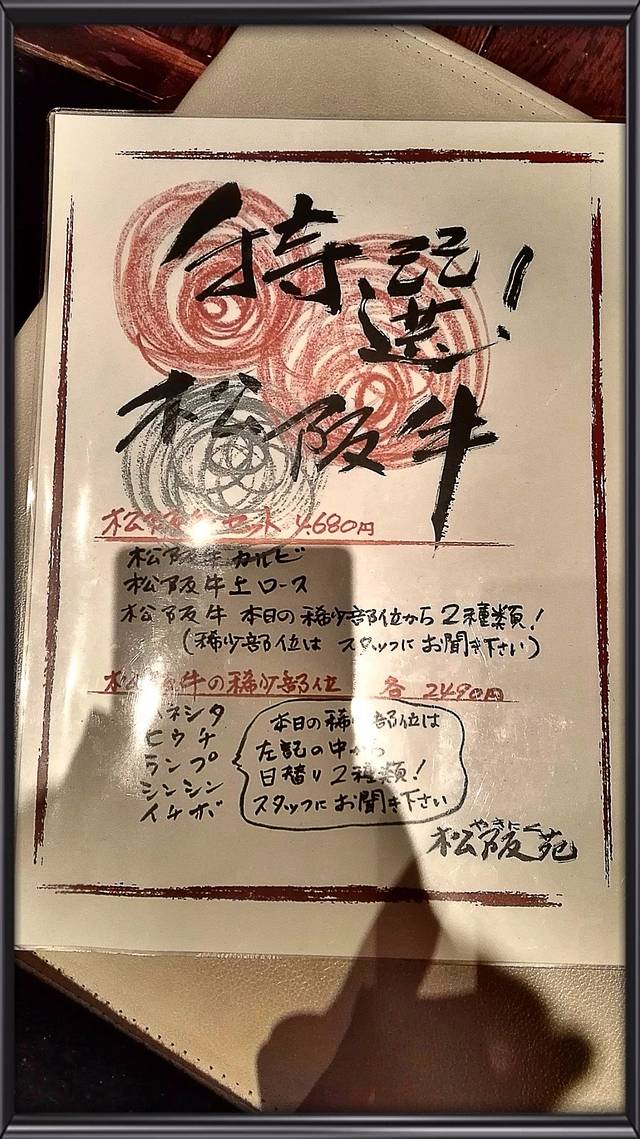 特選!
松阪牛
松阪牛セット 4,680円
松阪牛カルビ
松阪牛上ロース
松阪牛 本日の稀少部位から2種類!
(稀少部位は スタッフに お聞き下さい)
松阪牛の稀少部位 各 2490円
ハネシタ
ヒウチ
ランプ
シンシン
イチボ
本日の稀少部位は
左記の中から
日替り2種類!
スタッフに お聞き下さい
やきにく
松阪苑